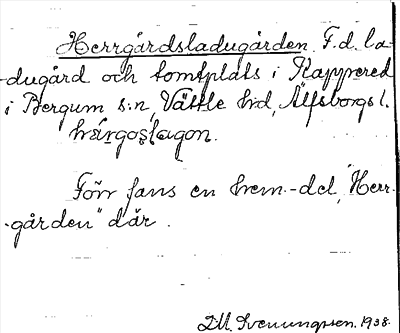 Herrgårdsladugården. F.d. la-
-dugård och tomtplats i Kappered
i Bergum s:n, Vättle hd, Älfsborgs l.
Förr fans en hem.-del, "Herr-
-gården" där.
D.M. Svenungsson. 1938.